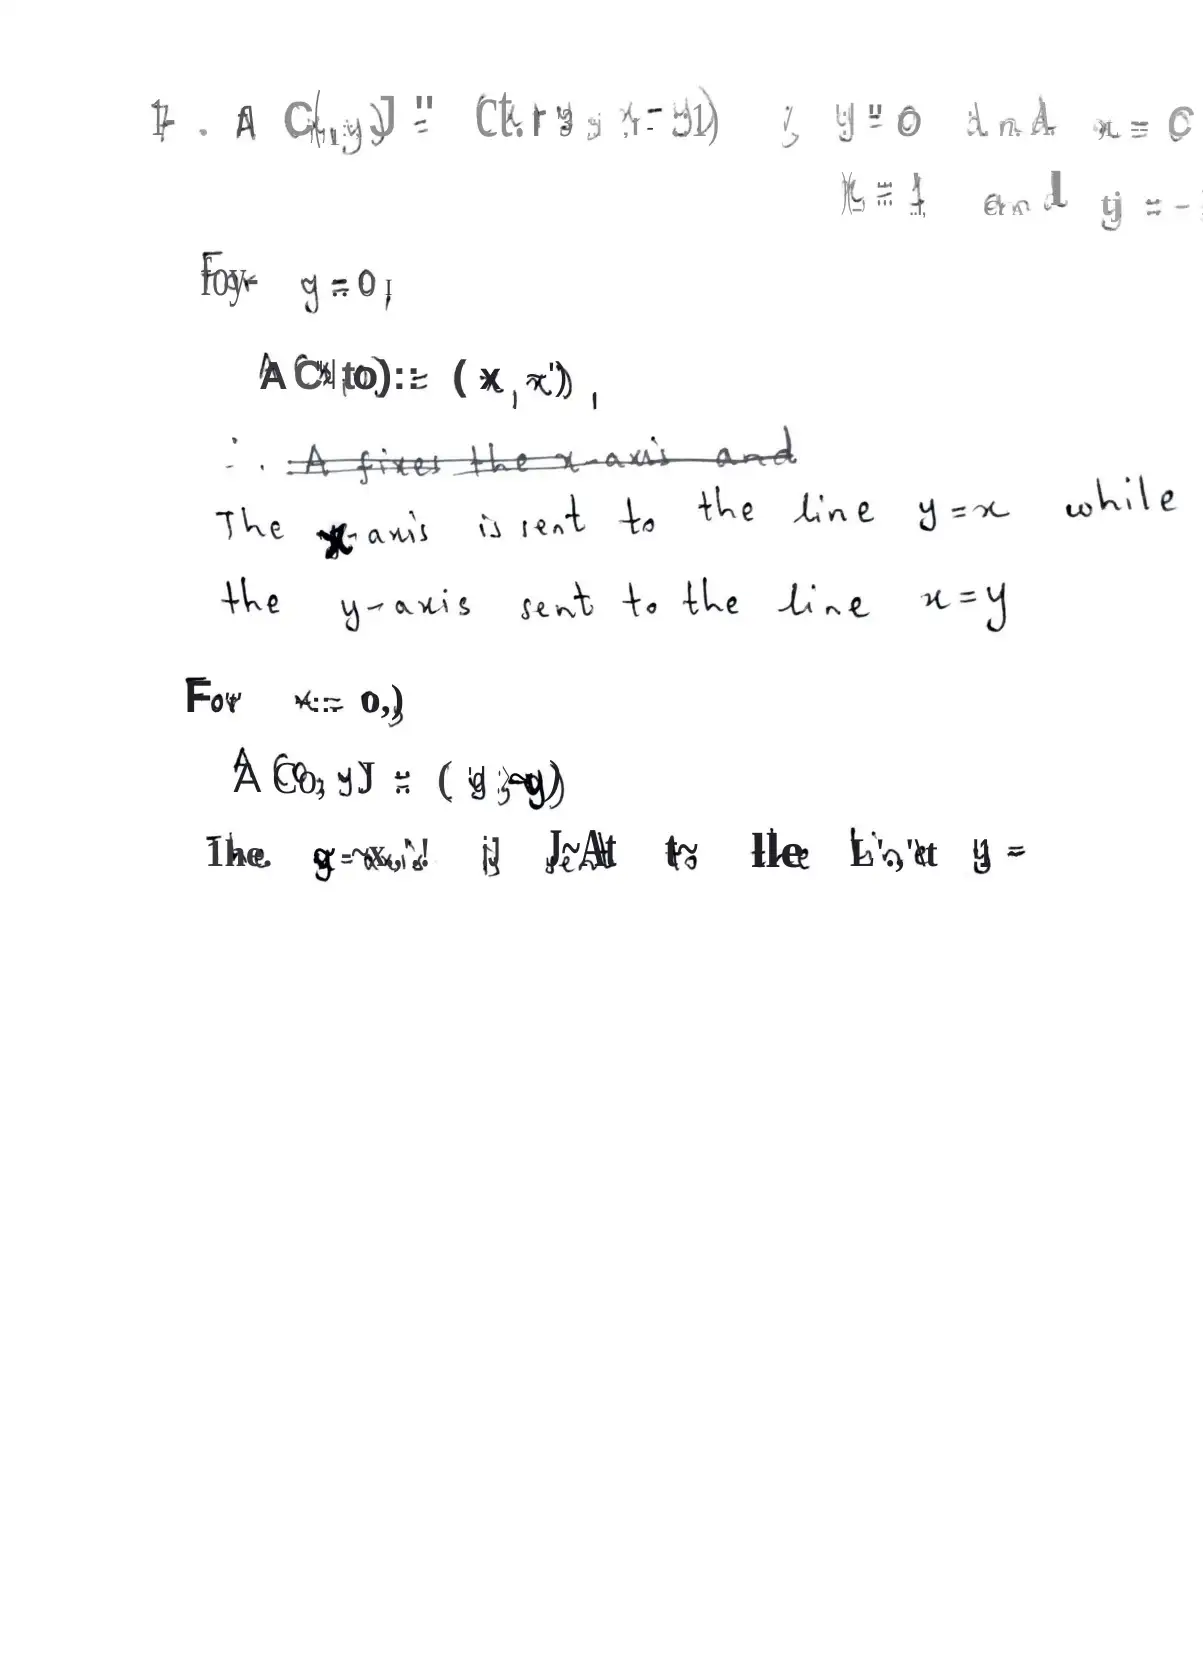 1. A(x,y) = (x+y, x-y) ; y=0 and x=0
x=1 and y=-
For y=0,
A(x,0) = (x, x),
∴ A fixes the x-axis and
The x-axis is sent to the line y=x while
the y-axis sent to the line x=y
For x=0,
A(0,y) = (y,-y)
The y-axis is sent to the line y =